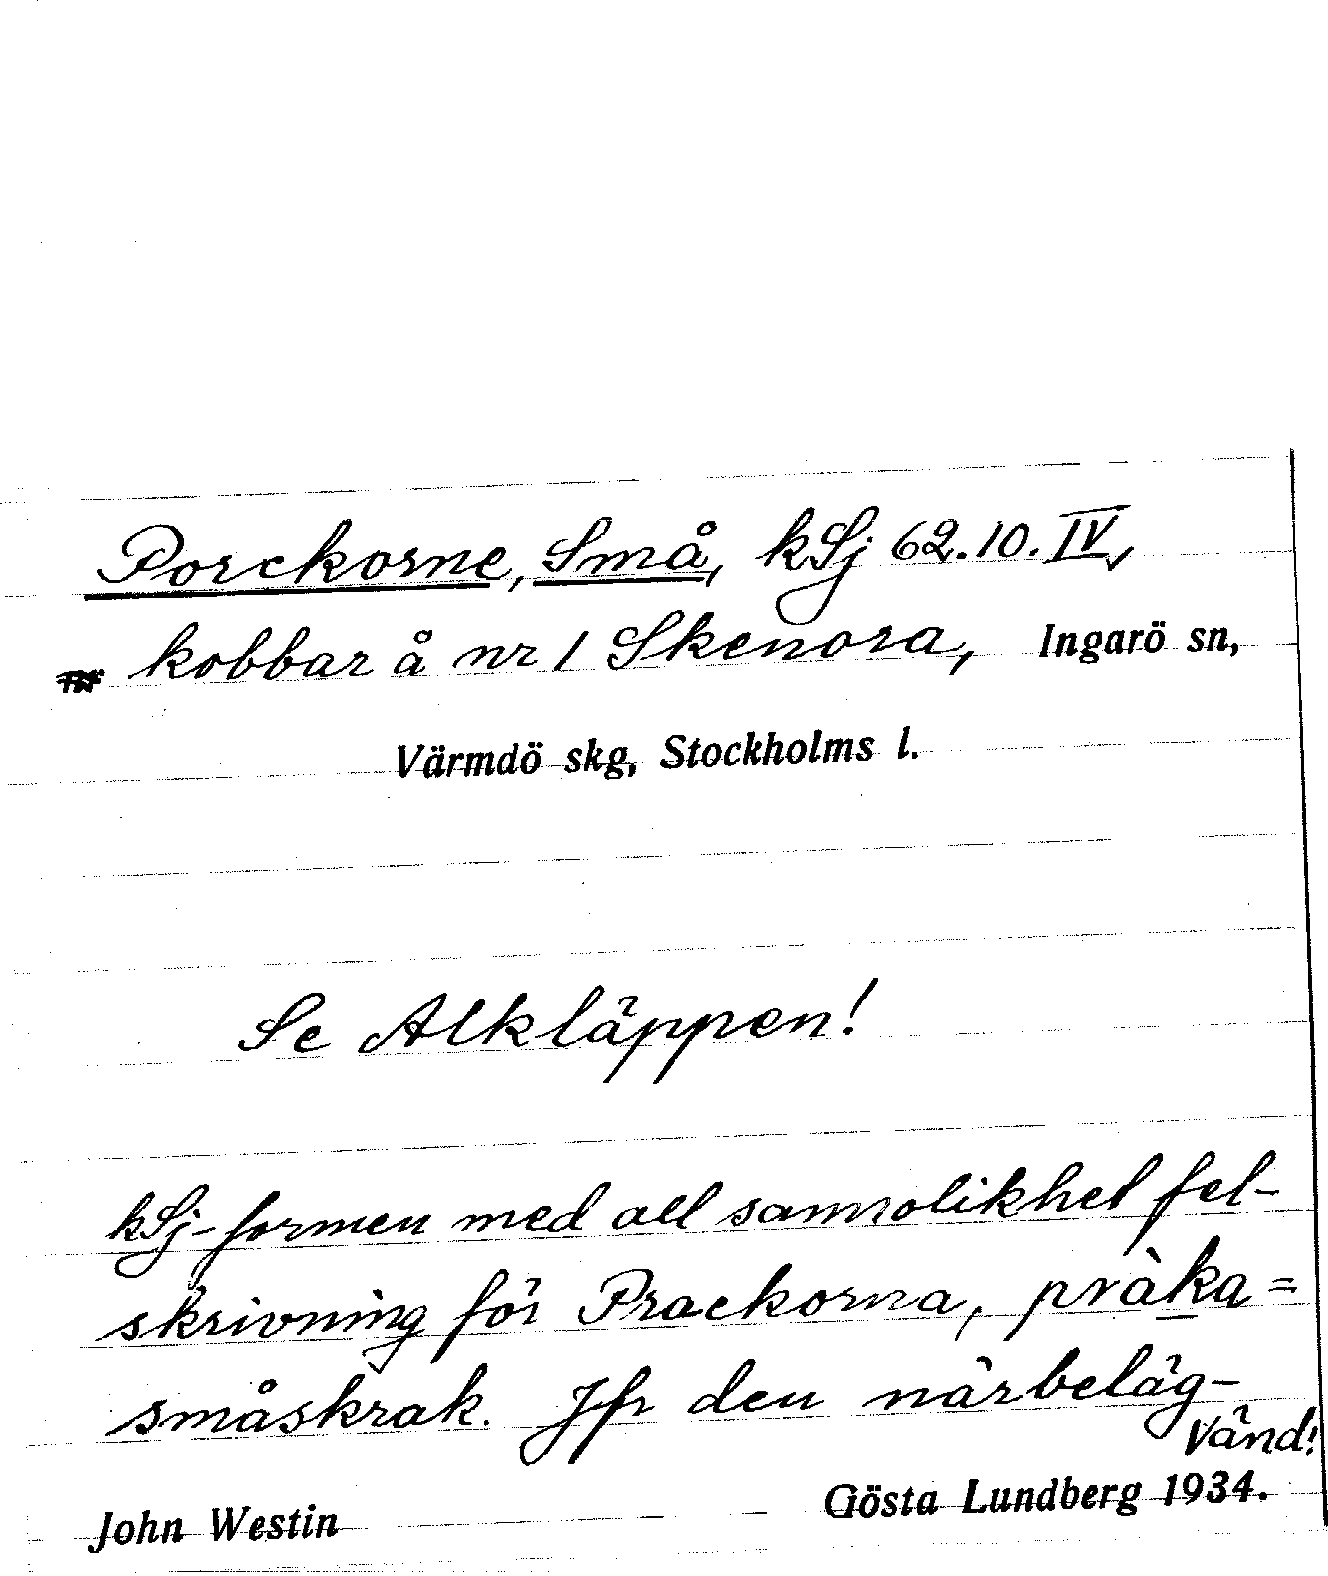 Porckorne, Små, kSj 62.10.IV,
kobbar å nr 1 Skenora, Ingarö sn,
Värmdö skg, Stockholms l.
Se Alkläppen!
kSj-formen med all sannolikhet fel-
skrivning för Prackorna, pràka =
småskrak. Jfr den närbeläg-
Vänd!
John Westin Gösta Lundberg 1934.